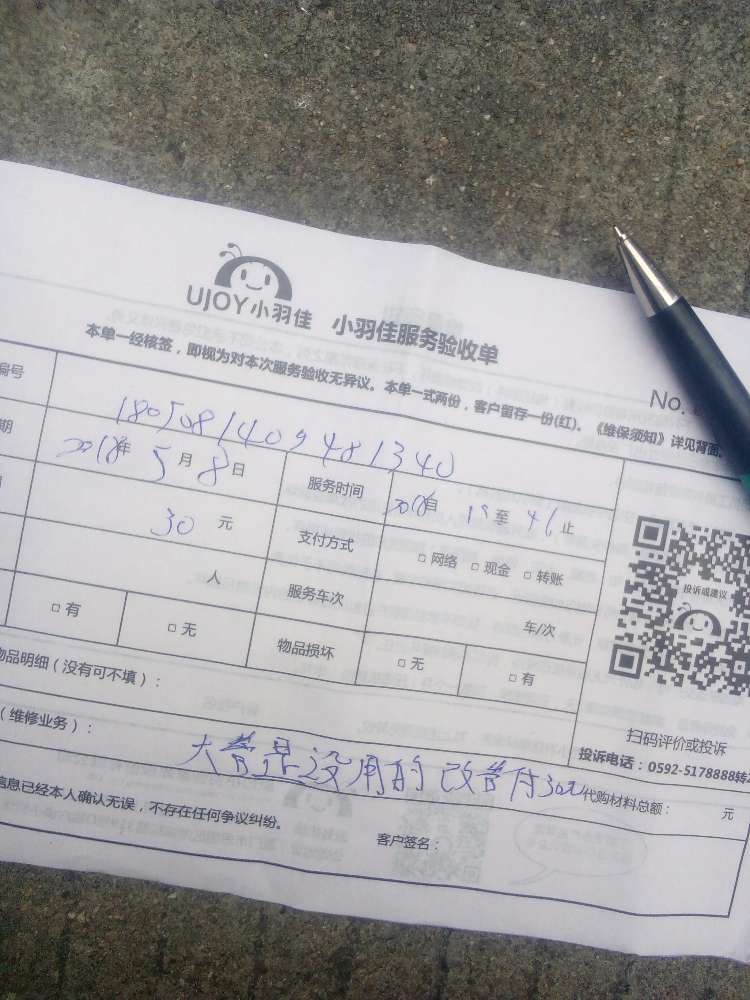 UJOY小羽佳 小羽佳服务验收单
本单一经核签，即视为对本次服务验收无异议。本单一式两份，客户留存一份(红)。《维保须知》详见背面。
No.
编号 1805081409481340
期 2018年 5月 8日 服务时间 自 至 止
30 元 支付方式 □ 网络 □ 现金 □ 转账
人 服务车次 车/次
□ 有 □ 无 物品损坏 □ 无 □ 有
物品明细（没有可不填）：
投诉或建议
扫码评价或投诉
投诉电话：0592-5178888转
（维修业务）： 大管是没用的 改管付30元 代购材料总额： 元
信息已经本人确认无误，不存在任何争议纠纷。 客户签名：